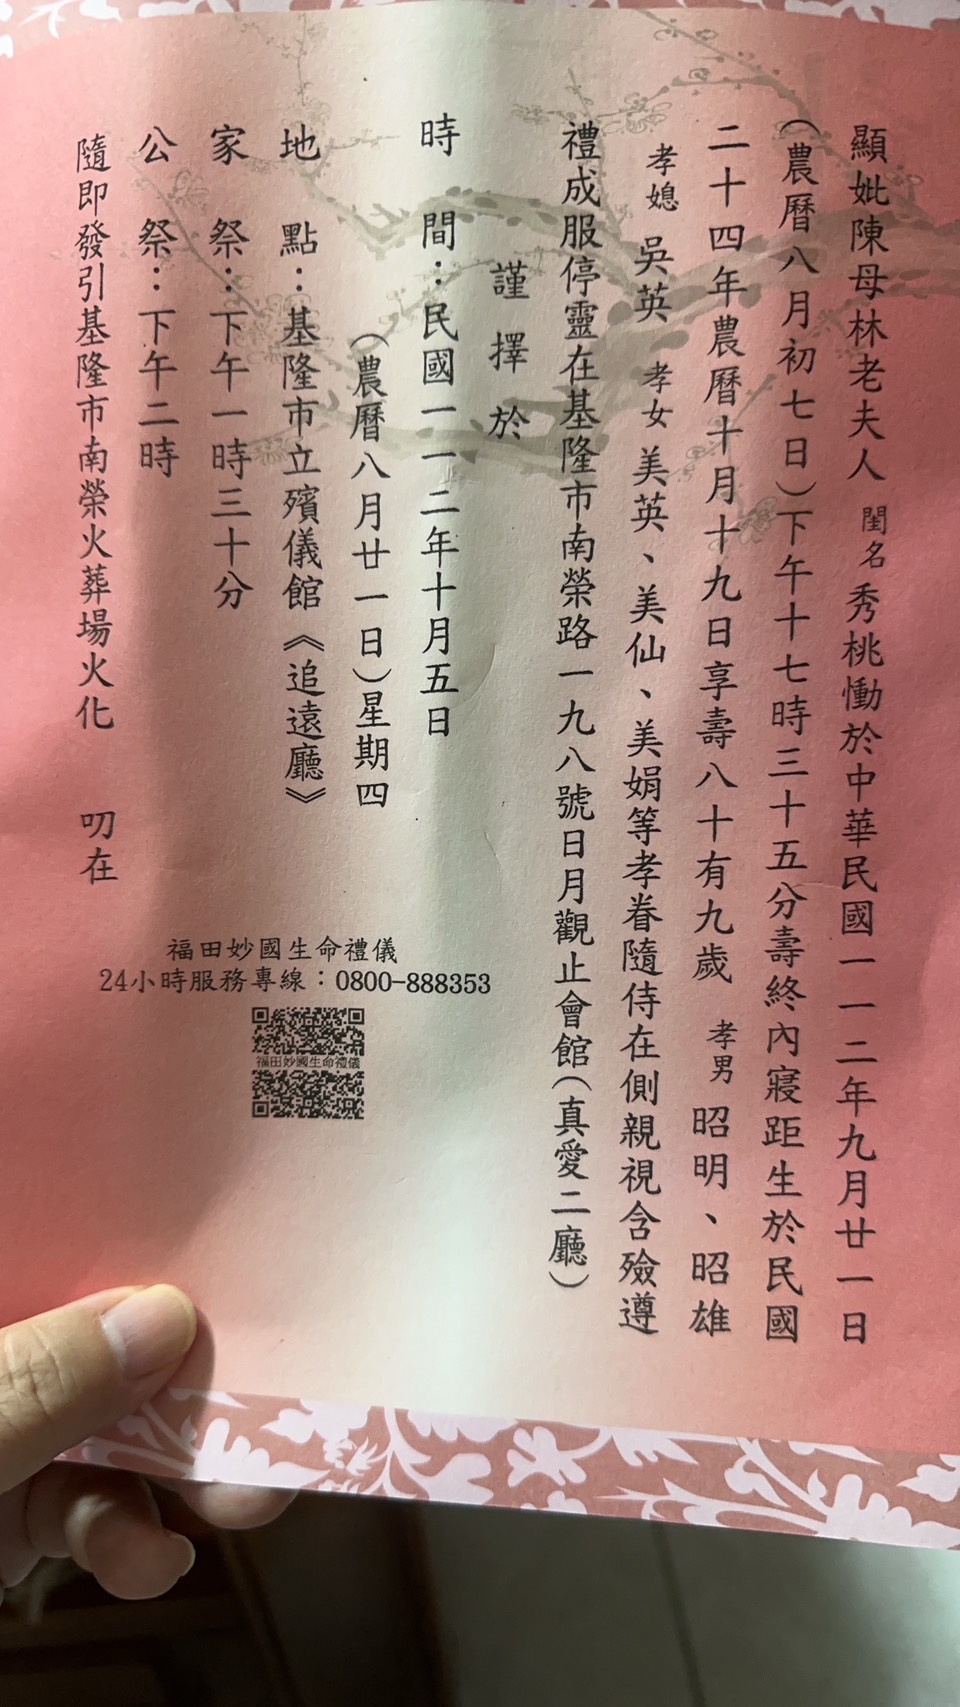 顯妣陳母林老夫人 閨名 秀桃慟於中華民國一一二年九月廿一日
(農曆八月初七日)下午十七時三十五分壽終內寢距生於民國
二十四年農曆十月十九日享壽八十有九歲 孝男 昭明、昭雄
孝媳 吳英 孝女 美英、美仙、美娟等孝眷隨侍在側親視含殮遵
禮成服停靈在基隆市南榮路一九八號日月觀止會館(真愛二廳)
謹擇於
時 間：民國一一二年十月五日
(農曆八月廿一日)星期四
地 點：基隆市立殯儀館《追遠廳》
家 祭：下午一時三十分
公 祭：下午二時
隨即發引基隆市南榮火葬場火化 叨在
福田妙國生命禮儀
24小時服務專線：0800-888353
福田妙國生命禮儀